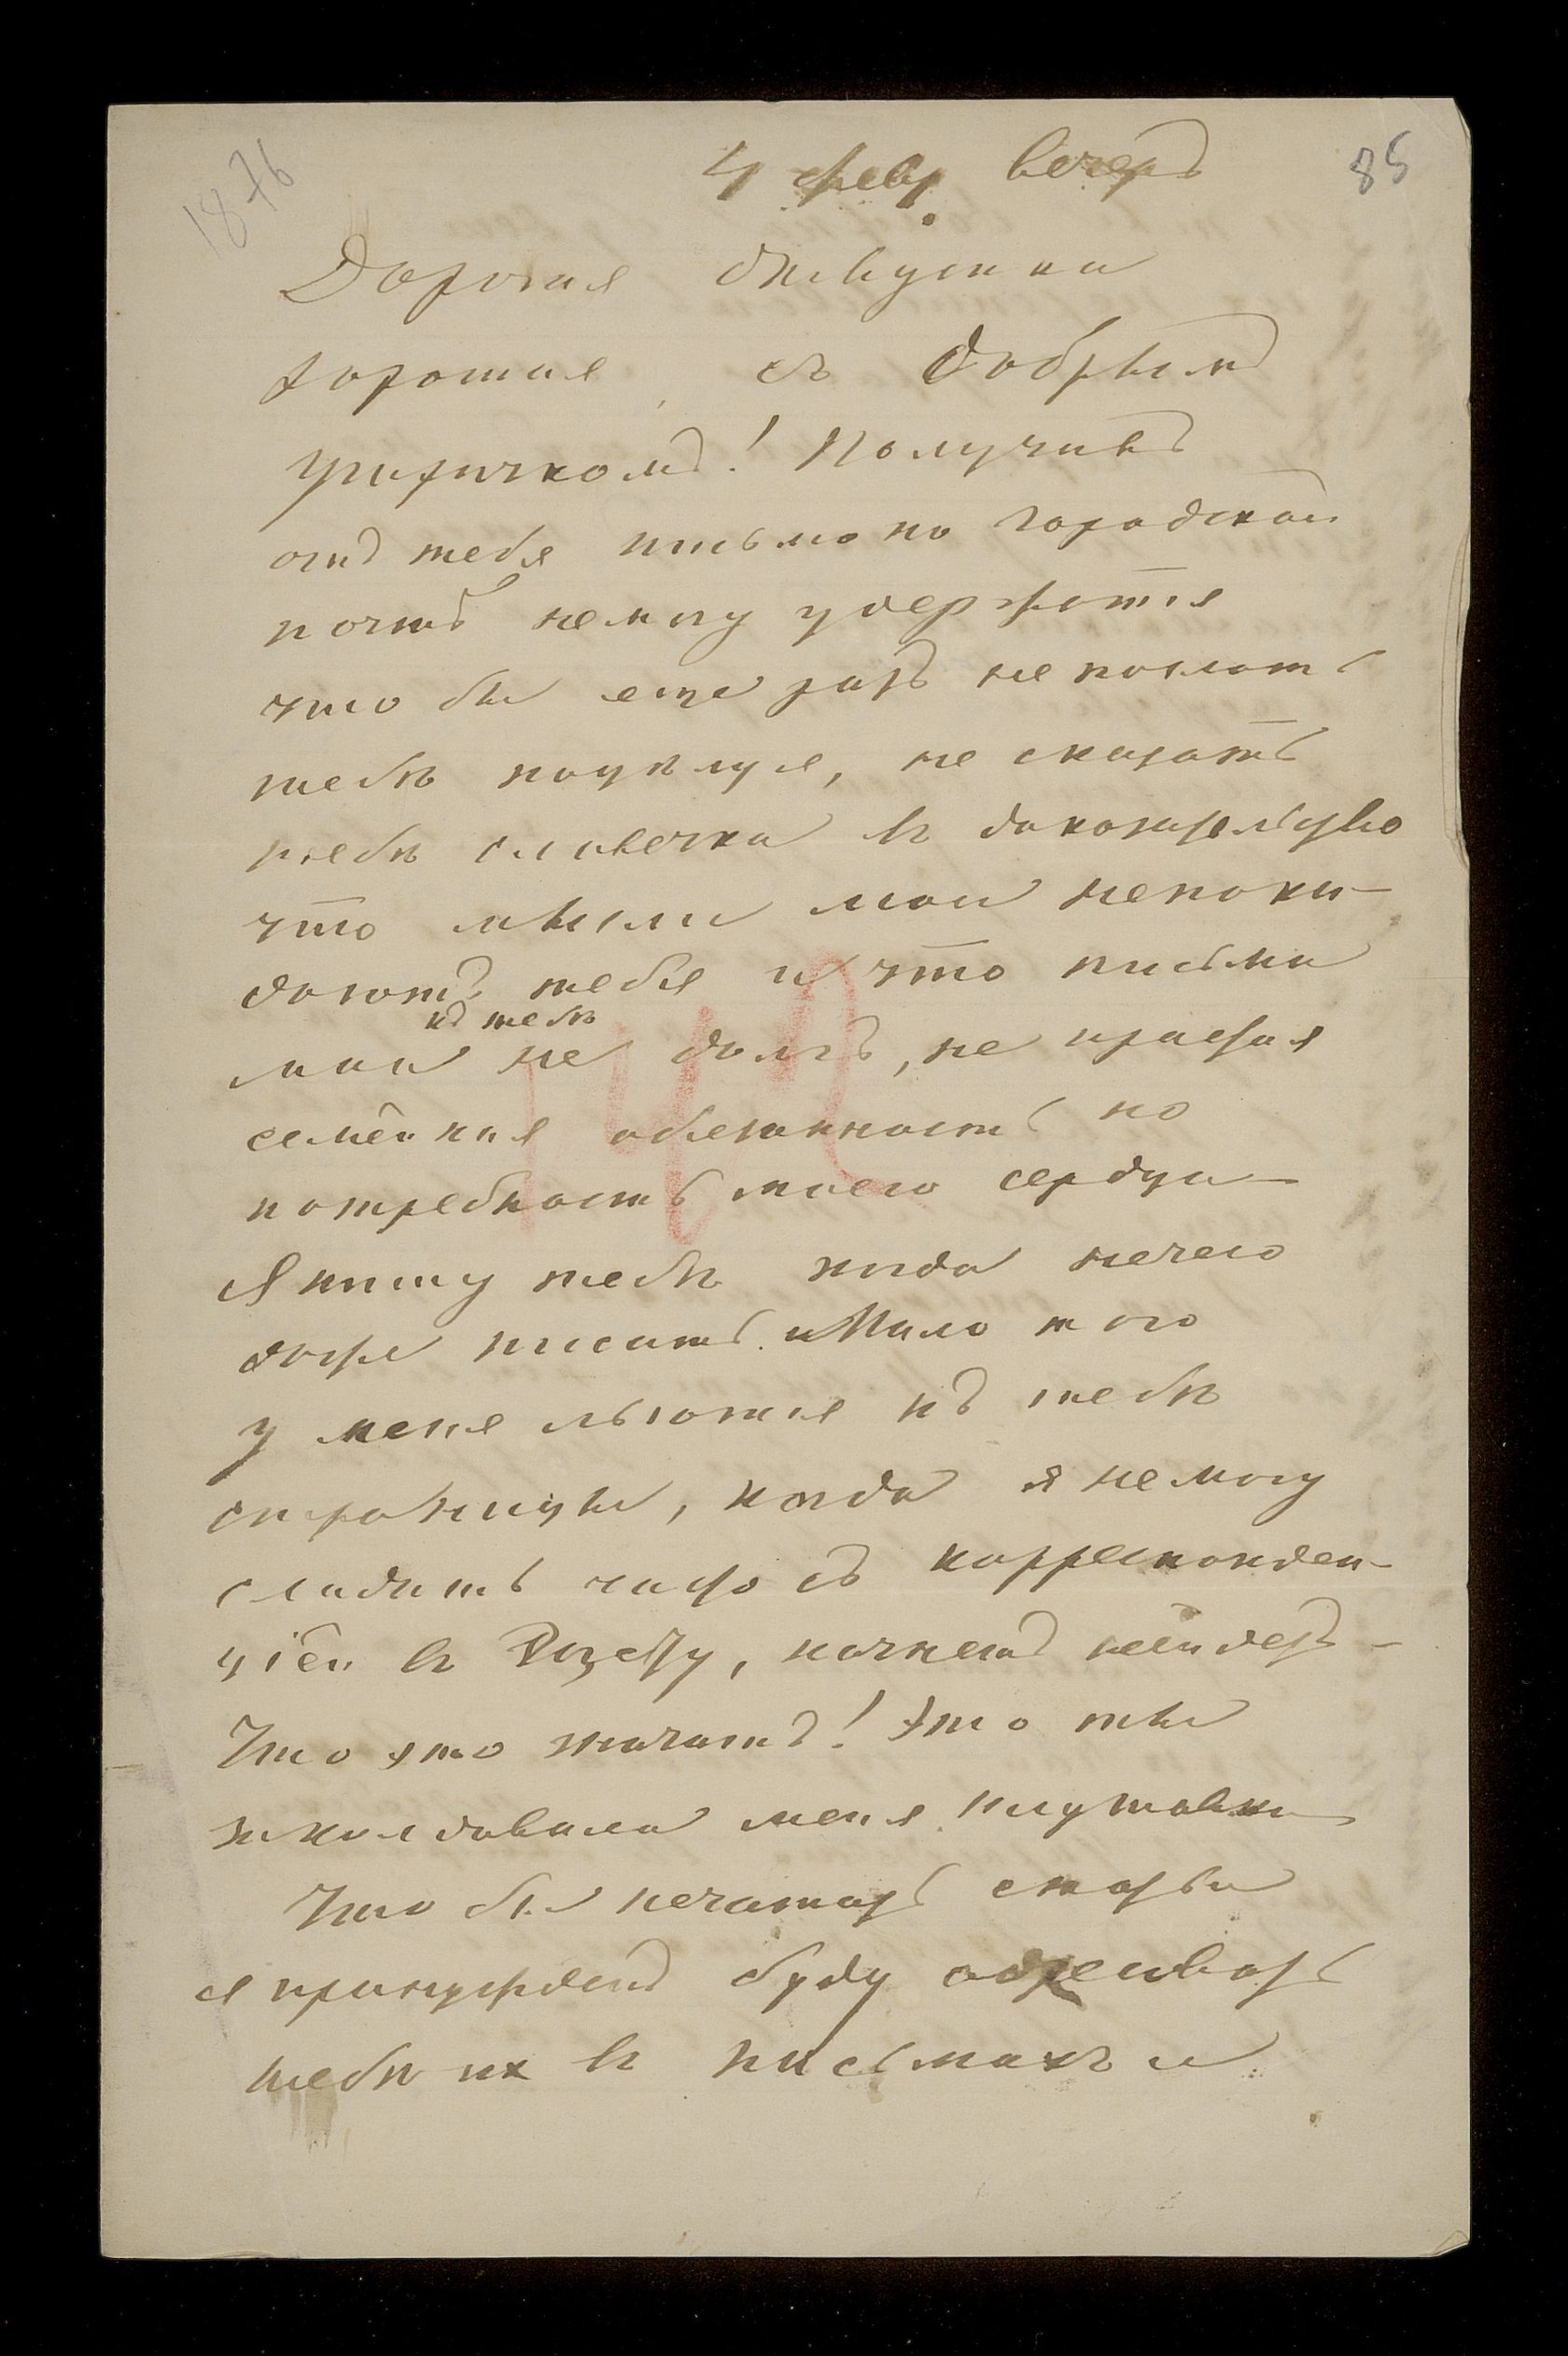 1876
85
4 февр. вечеръ
Дорогая
хорошая, съ добрымъ
утричкомъ! Получивъ
отъ тебя письмо по городской
почтѣ не могу удержатся
что бы еще разъ не послать
тебѣ поцѣлуя, не сказать
тебѣ словечка въ доказательство
что мысли мои непоки-
даютъ тебя и что письма
къ тебѣ
мои не долгъ, не праздная
семейная обязанность но
потребность моего сердца
Я пишу тебѣ когда нечего
даже писать. Мало того
у меня льются къ тебѣ
страницы, когда я не могу
сладить часто съ корреспонден-
ціей въ газету, начнешь нейдетъ
Что это значитъ! Это ты
околдовала меня плутовка
Что бы печатать статьи
я принужденъ буду адресовать
тебѣ их въ письмахъ и